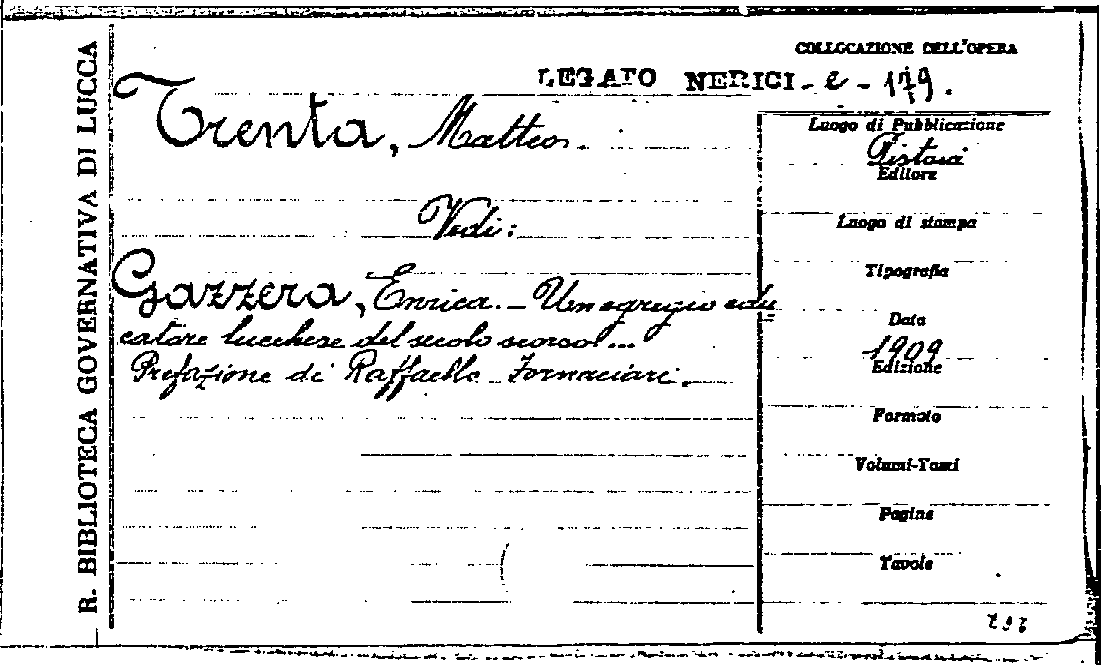 R. BIBLIOTECA GOVERNATIVA DI LUCCA
COLLOCAZIONE DELL'OPERA
LEGATO NERICI - e - 179.
Trenta, Matteo.
Vedi:
Gazzera, Enrica. - Un egregio edu
catore lucchese del secolo scorso ...
Prefazione di Raffaello Fornaciari.
Luogo di Pubblicazione
Pistoia
Editore
Luogo di stampa
Tipografia
Data
1909
Edizione
Formato
Volumi-Tomi
Pagine
Tavole